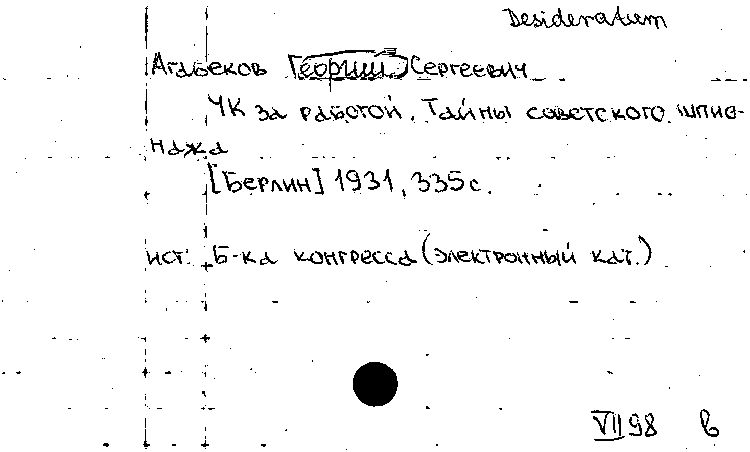 Desideratum
Агабеков Георгий Сергеевич
ЧК за работой. Тайны советского шпио-
нажа
[Берлин] 1931, 335 с.
ист: Б-ка конгресса (электронный кат.)
VII 98 в